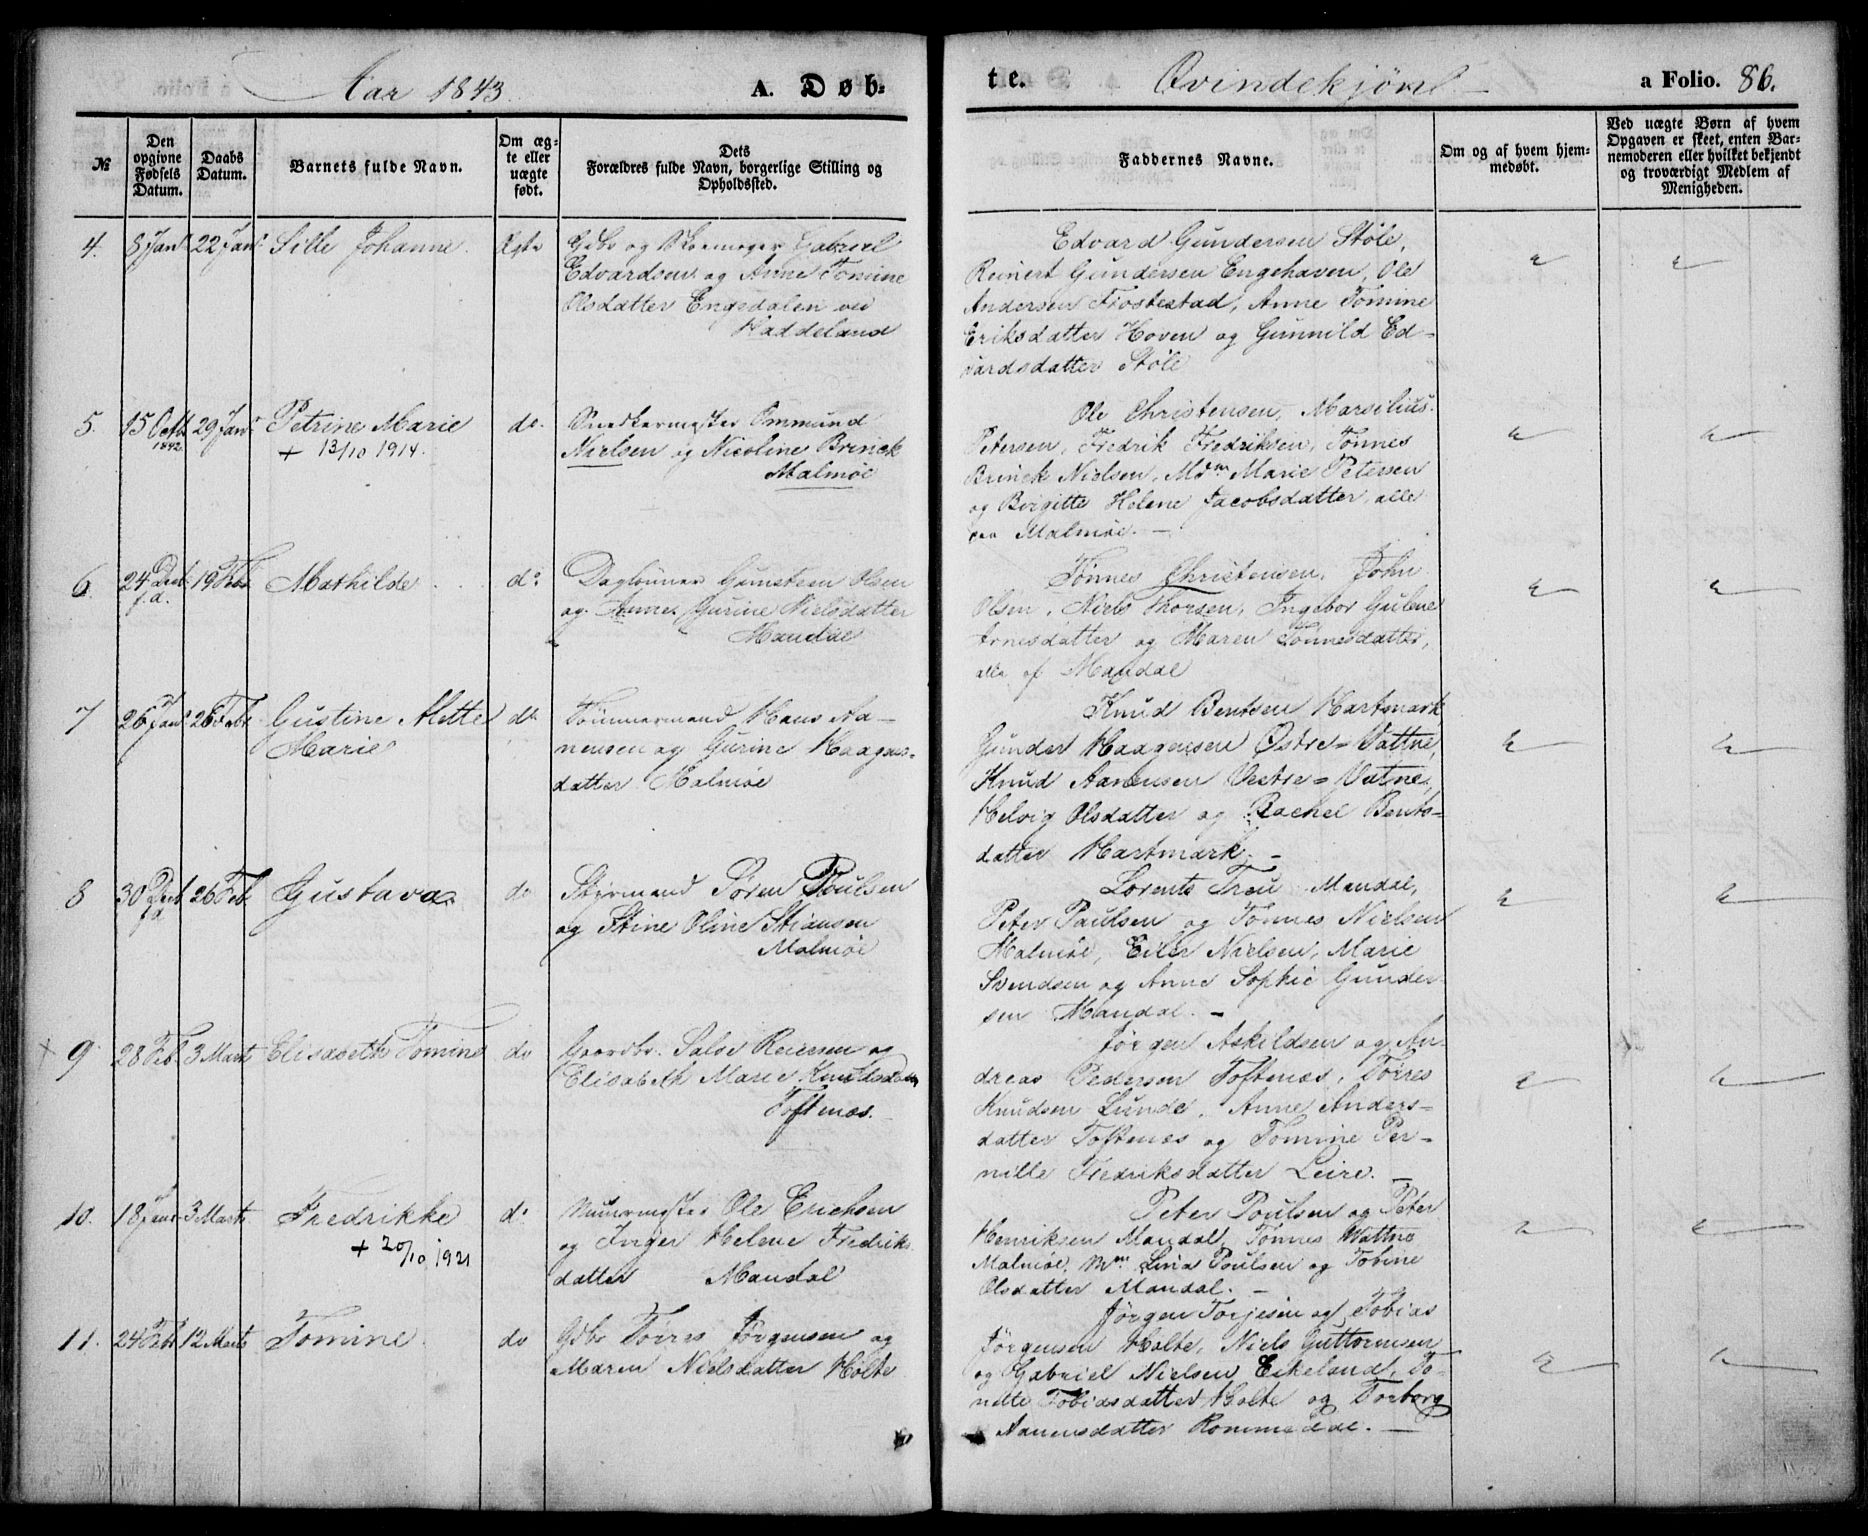 Aar 1843. A. Døb-
te. Qvindekjøn a Folio. 86.
№ Den opgivne Fødsels Datum. Daabs Datum. Barnets fulde Navn. Om ægte eller uægte født. Dets Forældres fulde Navn, borgerlige Stilling og Opholdssted.
Faddernes Navne. Om og af hvem hjemmedøbt. Ved uægte Børn af hvem Opgaven er skeet, enten Barnemoderen eller hvilket bekjendt og troværdigt Medlem af Menigheden.
4. 8 Jan. 22 Jan. Sille Johanne. Ægte Gdbr og Skoemager Gabriel
Edvardsen og Anne Tomine
Olsdatter Engedalen ved
Haddeland
Edvard Gundersen Støle,
Reinert Gundersen Engehaven, Ole
Andersen Frostestad, Anne Tomine
Eriksdatter Hoven og Gunnild Ed-
vardsdatter Støle
5. 15 Octb 1842 29 Jan. Petrine Marie do. Snedkermester Ommund
+ 13/10 1914. Nielsen og Nicoline Brinck
Malmøe
Ole Christensen, Marsilius
Petersen, Fredrik Fredriksen, Tønnes
Brinck Nielsen, Mdm Marie Petersen
og Birgitte Helene Jacobsdatter, alle
paa Malmøe. —
6. 24 Decb f.d. 19 Feb Mathilde do Daglønner Gumsteen Olsen
og Anne Gurine Nielsdatter
Mandal
Tønnes Christensen, John
Olsen, Niels Thorsen, Ingebor Gulene
Arnesdatter og Maren Tønnesdatter,
alle af Mandal
7 26 Jan. 26 Febr. Gustine Mette do Tømmermand Hans Aa-
Marie nensen og Gurine Haagens-
datter Malmøe
Knud Bentsen Hartmark
Gunder Haagensen Østre-Vattne,
Knud Aanensen Vestre-Vatne,
Helvig Olsdatter og Rachel Bents-
datter Hartmark. —
8 30 Decb f.d. 26 Feb Gustava do Styrmand Søren Poulsen
og Stine Oline Stiansen
Malmøe
Lorents Treu Mandal,
Peter Paulsen og Tønnes Nielsen
Malmøe, Eiler Nielsen, Marie
Svendsen og Anne Sophie Gunder-
sen Mandal. —
9. 28 Feb. 3 Marts Elisabeth Tomine do Gaardbr. Salve Reiersen og
Elisabeth Marie Knudsdatter
Toftenæs.
Jørgen Askildsen og An-
dreas Pedersen Toftenæs, Tørres
Knudsen Lunde, Anne Anders-
datter Toftenæs og Tomine Per-
nille Fredriksdatter Leire. —
10. 18 Janr 3 Marts Fredrikke do Muurmester Ole Erichsen
+ 20/10 1921 og Inger Helene Fredriks
datter Mandal
Peter Poulsen og Peter
Henriksen Mandal, Tønnes Wattne
Malmøe, Mm Lina Poulsen og Tobine
Olsdatter Mandal. —
11. 24 Febr 12 Marts Tomine do Gdbr Tørres Jørgensen og
Maren Nielsdatter Holte
Jørgen Torjesen og Tobias
Jørgensen Holte, Niels Guttormsen
og Gabriel Nielsen Eikeland, To-
nette Tobiasdatter Holte og Torborg
Aanensdatter Rommedal. —